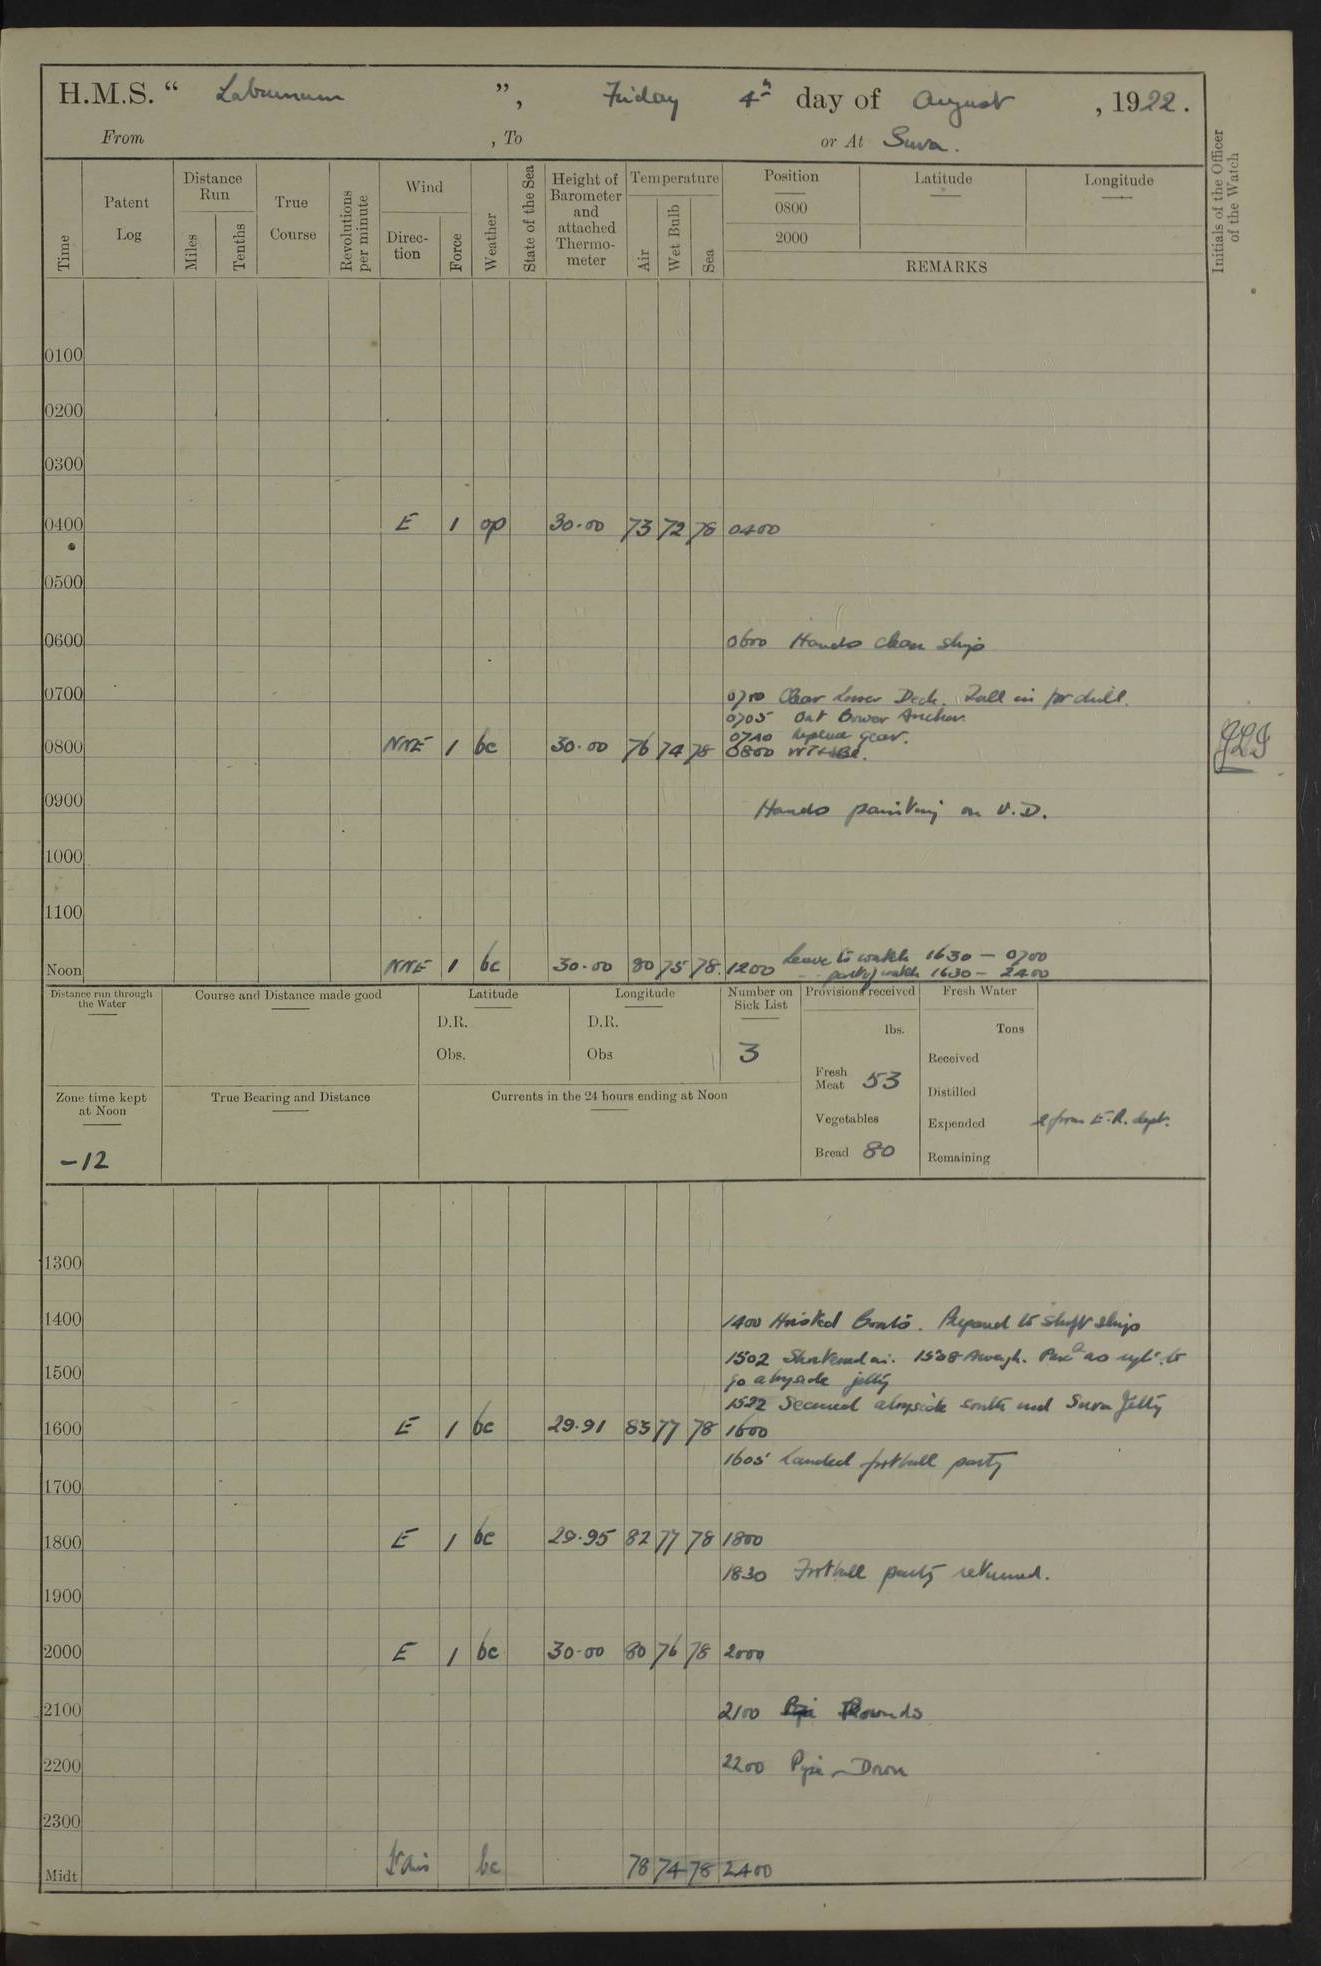 H.M.S. “ Laburnum ”, Friday 4th day of August , 1922.
From , To or At Suva.
Time
Patent Log
Distance Run
Miles
Tenths
True Course
Revolutions per minute
Wind
Direc-tion
Force
Weather
State of the Sea
Height of Barometer and attached Thermo-meter
Temperature
Air
Wet Bulb
Sea
Position
0800
2000
Latitude
Longitude
REMARKS
Initials of the Officer of the Watch
0100
0200
0300
0400 E 1 op 30.00 73 72 78 0400
0500
0600 0600 Hands clean ship
0700 0700 Clear Lower Deck. Fall in for drill.
0705 Out Bower Anchor.
0740 Replace gear.
0800 NNE 1 bc 30.00 76 74 78 0800
0900 Hands painting on U.D.
1000
1100
Leave to watch 1630 — 0700
Noon NNE 1 bc 30.00 80 75 78 1200 party watch 1630 — 2400
Distance run through the Water
Course and Distance made good
Latitude
D.R.
Obs.
Longitude
D.R.
Obs
Number on Sick List
3
Provisions received
lbs.
Fresh Meat 53
Vegetables
Bread 80
Fresh Water
Tons
Received
Distilled
Expended from E.R. dept.
Remaining
Zone time kept at Noon
-12
True Bearing and Distance
Currents in the 24 hours ending at Noon
1300
1400 1400 Hoisted Boats. Prepared to shift ship
1502 Shortened in. 1508 Aweigh. to
1500 go alongside jetty
1522 Secured alongside south end Suva Jetty
1600 E 1 bc 29.91 83 77 78 1600
1605 Landed football party
1700
1800 E 1 bc 29.95 82 77 78 1800
1830 Football party returned.
1900
2000 E 1 bc 30.00 80 76 78 2000
2100 2100 Rounds
2200 2200 Pipe Down
2300
Midt Lt airs bc 78 74 78 2400